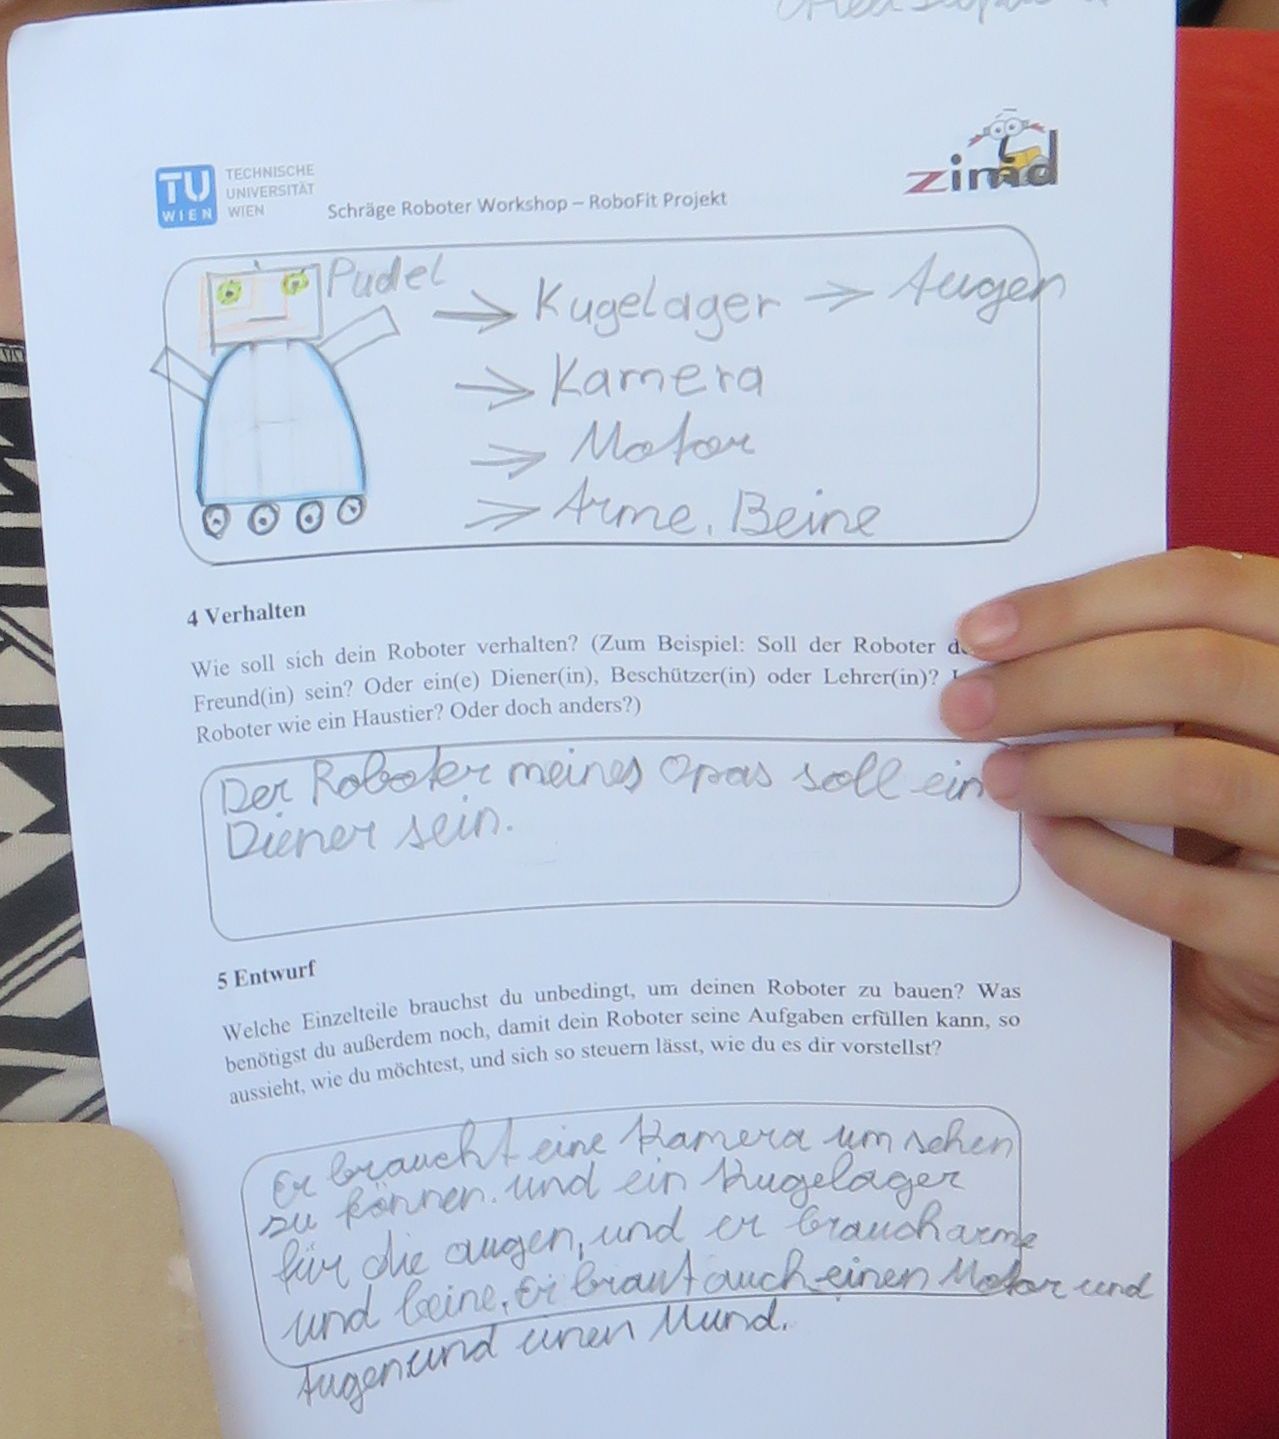 TU
WIEN
TECHNISCHE
UNIVERSITÄT
WIEN
Schräge Roboter Workshop – RoboFit Projekt
zimd
Pudel
→ Kugelager → Augen
→ Kamera
→ Motor
→ Arme, Beine
4 Verhalten
Wie soll sich dein Roboter verhalten? (Zum Beispiel: Soll der Roboter
Freund(in) sein? Oder ein(e) Diener(in), Beschützer(in) oder Lehrer(in)?
Roboter wie ein Haustier? Oder doch anders?)
Der Roboter meines Opas soll ein
Diener sein.
5 Entwurf
Welche Einzelteile brauchst du unbedingt, um deinen Roboter zu bauen? Was
benötigst du außerdem noch, damit dein Roboter seine Aufgaben erfüllen kann, so
aussieht, wie du möchtest, und sich so steuern lässt, wie du es dir vorstellst?
Er braucht eine Kamera um sehen
zu können. und ein Kugelager
für die augen, und er brauch arme
und beine. Er braut auch einen Motor und
Augen und einen Mund.